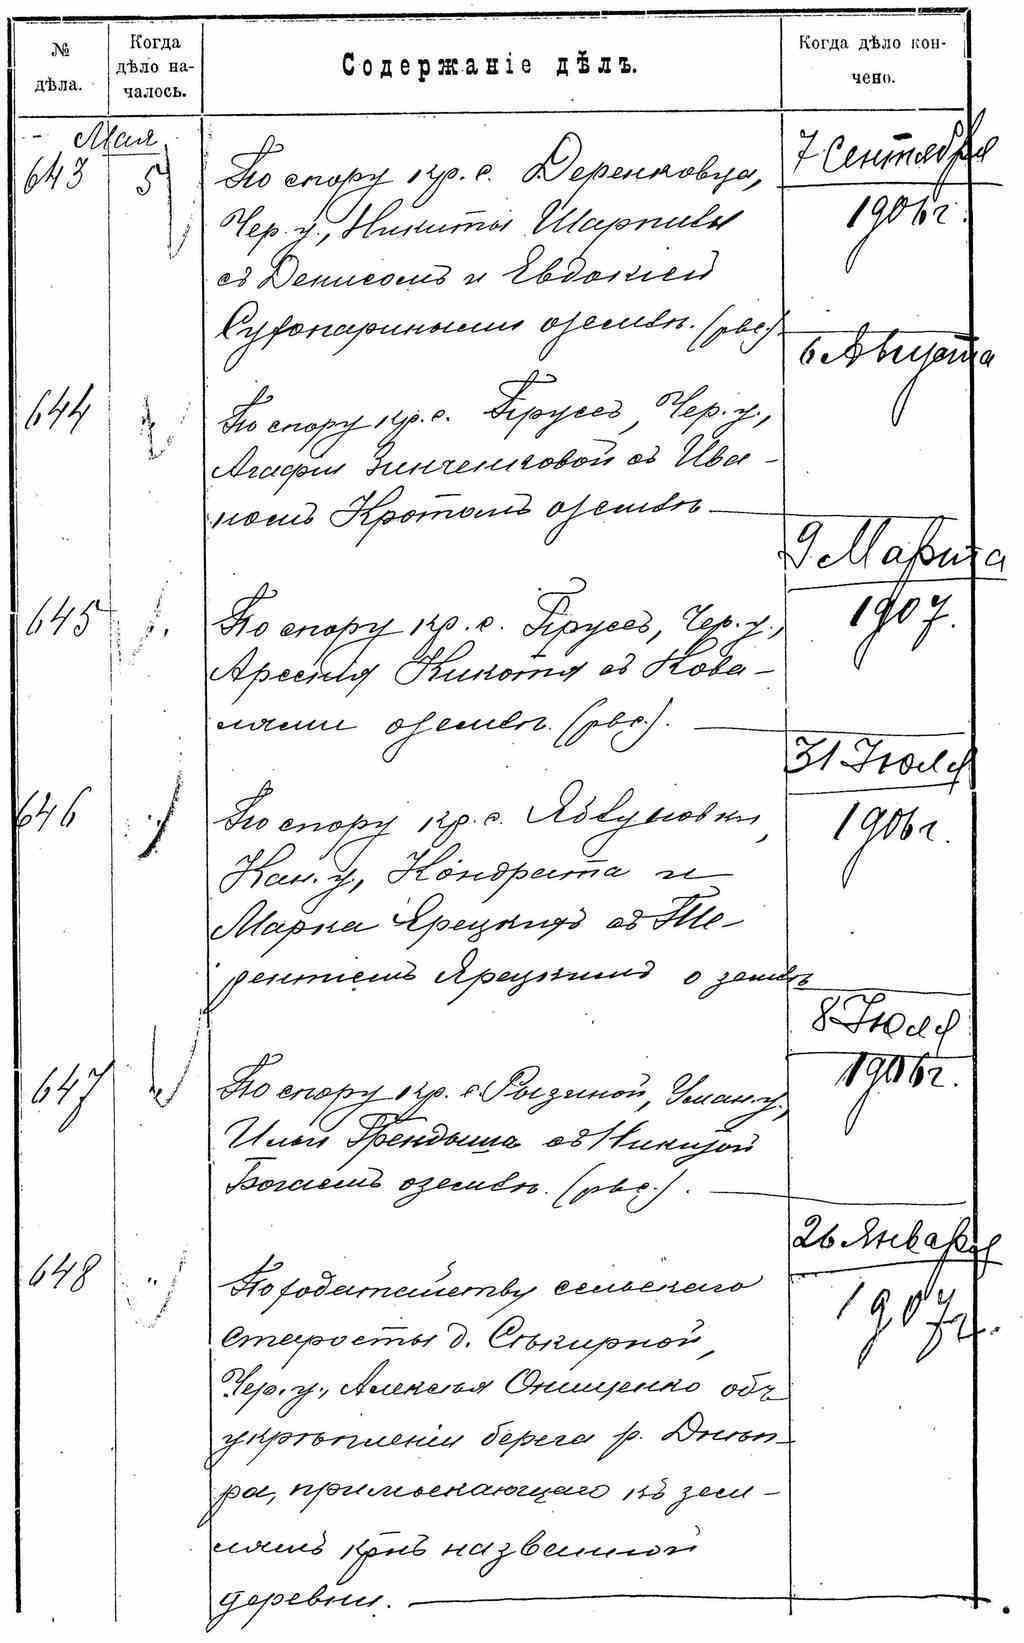 № дѣла.
Когда дѣло началось.
Содержаніе дѣлъ.
Когда дѣло кончено.
Мая
643 5
По спору кр. с. Деренковца,
Чер. у., Никиты Шарпивы
съ Денисомъ и Евдокіей
Сухопариными о землѣ. (рвс.)
7 Сентября
1906 г.
644
По спору кр. с. Прусъ, Чер. у.,
Агафіи Зинченковой съ Ива-
номъ Кротомъ о землѣ
6 Августа
645
По спору кр. с. Прусъ, Чер. у.,
Арсенія Кикотя съ Кова-
лями о землѣ. (рвс.).
9 Марта
1907.
646
По спору кр. с.
Кан. у., Кондрата и
Марка Ярецкихъ съ Те-
рентіемъ Ярецкимъ о землѣ
31 Іюля
1906 г.
647
По спору кр. с. Рызиной, Уман. у.,
Ильи Грендыша съ Никитой
Богаемъ о землѣ. (рвс.).
8 Іюля
1906 г.
648
По ходатайству сельскаго
старосты д. Сѣкирной,
Чер. у., Алексѣя Онищенко объ
укрѣпленіи берега р. Днѣп-
ра, примыкающаго къ зем-
лямъ крнъ названной
деревни.
26 Января
1907 г.